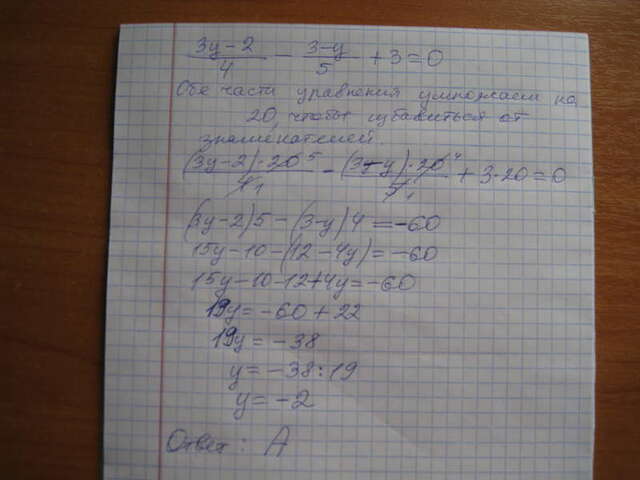 (3y-2)/4 - (3-y)/5 + 3 = 0
Обе части уравнения умножаем на
20, чтобы избавиться от
знаменателей.
(3y-2)·20⁵/4₁ - (3-y)·20⁴/5₁ + 3·20 = 0
(3y-2)5 - (3-y)4 = -60
15y-10-(12-4y) = -60
15y-10-12+4y = -60
19y = -60+22
19y = -38
y = -38:19
y = -2
Ответ: А